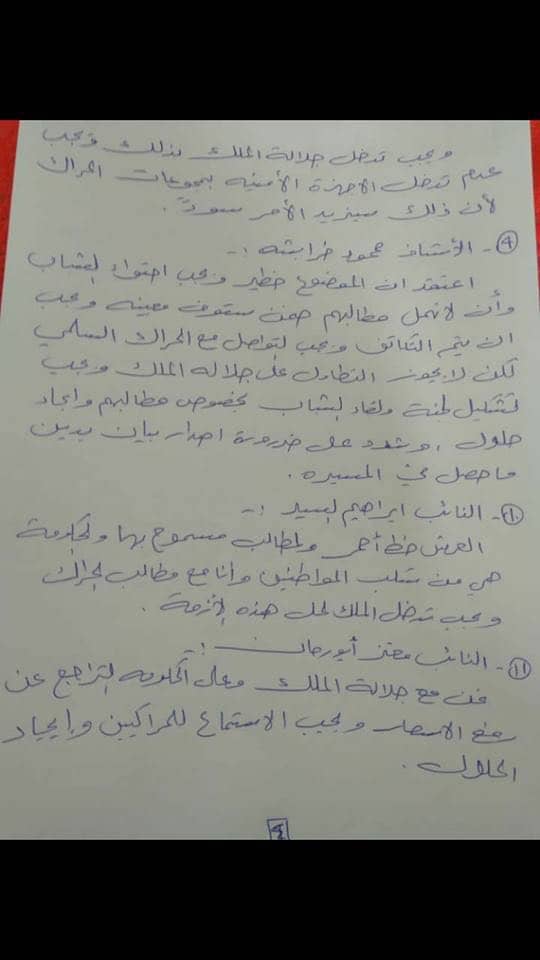 ويجب تدخل جلالة الملك بذلك ويجب
عدم تدخل الاجهزة الأمنية بمجموعات الحراك
لأن ذلك سيزيد الأمر سوءً .
٩- الأستاذ محمود خرابشه :-
اعتقد ان الموضوع خطير ويجب احتواء الشباب
وأن لا نهمل مطالبهم ضمن سقوف معينه ويجب
ان يتم التكاتف ويجب التواصل مع الحراك السلمي
لكن لا يجوز التطاول على جلالة الملك ويجب
تشكيل لجنة ولقاء الشباب بخصوص مطالبهم وايجاد
حلول . وشدد على ضرورة اصدار بيان يدين
ما حصل في المسيره .
١٠- النائب ابراهيم السيد :-
العرش خط أحمر والمطالب مسموح بها والحكومة
هي من سلب المواطنين وأنا مع مطالب الحراك
ويجب تدخل الملك لحل هذه الأزمة .
١١- النائب معتز أبو رمان :-
نحن مع جلالة الملك وعلى الحكومه التراجع عن
رفع الاسعار ويجب الاستماع للحراكيين وإيجاد
الحلول .
٤